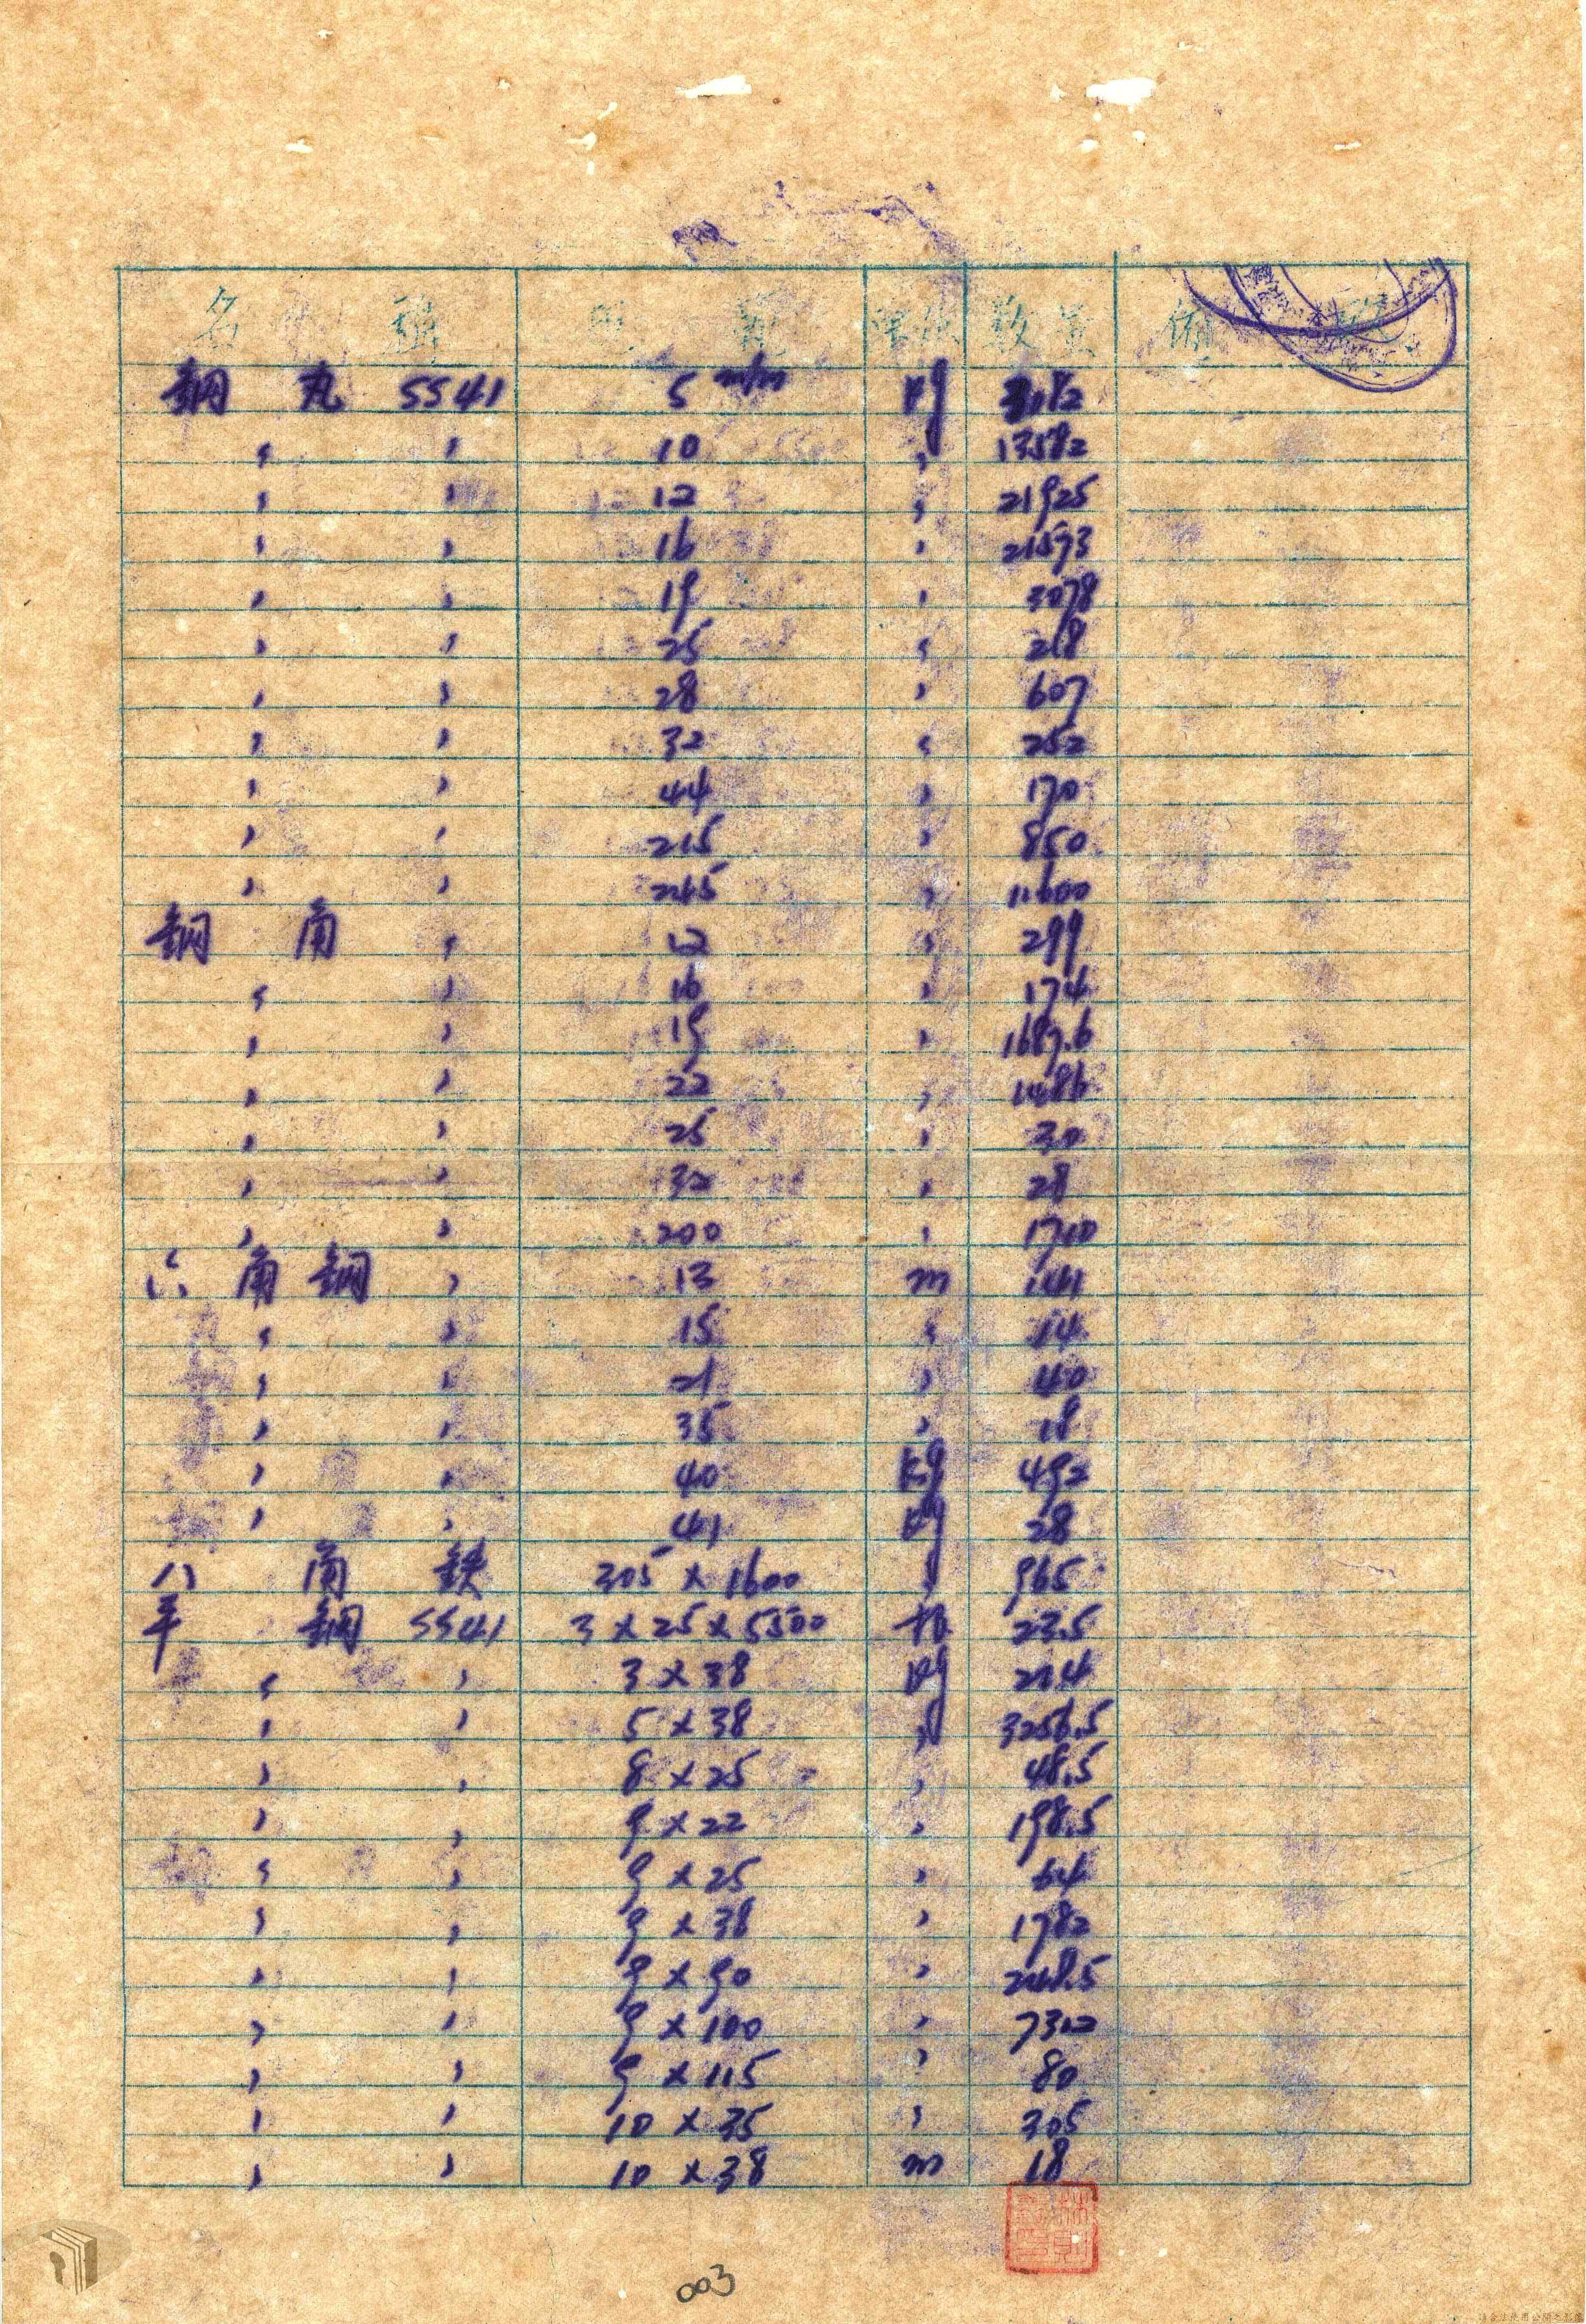 名稱 單位 數量 備
鋼丸 SS41 5 m/m kg
〃 〃 10 〃 13582
〃 〃 12 〃 21925
〃 〃 16 〃 21593
〃 〃 19 〃 3078
〃 〃 25 〃 218
〃 〃 28 〃 607
〃 〃 32 〃 252
〃 〃 44 〃 170
〃 〃 215 〃 850
〃 〃 265 〃 11600
鋼角 〃 12 〃 299
〃 〃 16 〃 174
〃 〃 19 〃 1689.6
〃 〃 22 〃
〃 〃 25 〃 30
〃 〃 32 〃 28
〃 〃 200 〃 1710
六角鋼 〃 13 m 141
〃 〃 15 〃 14
〃 〃 21 〃 40
〃 〃 35 〃 18
〃 〃 40 kg 492
〃 〃 41 kg 28
八角鉄 305 × 1600 〃 965
平鋼 SS41 3 × 25 × 5500 23.5
〃 〃 3 × 38 kg
〃 〃 5 × 38 〃 3256.5
〃 〃 8 × 25 〃 48.5
〃 〃 9 × 22 〃 198.5
〃 〃 9 × 25 〃 64
〃 〃 9 × 38 〃 1782
〃 〃 9 × 90 〃 2468.5
〃 〃 9 × 100 〃 7312
〃 〃 9 × 115 〃 80
〃 〃 10 × 35 〃 305
〃 〃 10 × 38 m 18
003